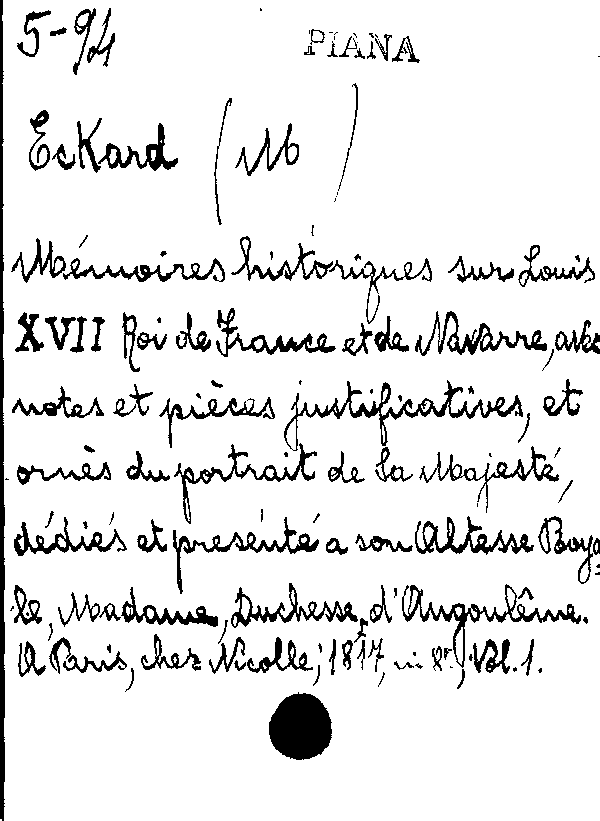 5-94
PIANA
Eckard (M)
Mémoires historiques sur Louis
XVII Roi de France et de Navarre, avec
notes et pièces justificatives, et
ornès du portrait de la Majesté,
dédiés et présenté a son Altesse Roya=
le, Madame, Duchesse, d'Angoulême.
A Paris, chez Nicolle, 1817, in 8º, Vol. 1.